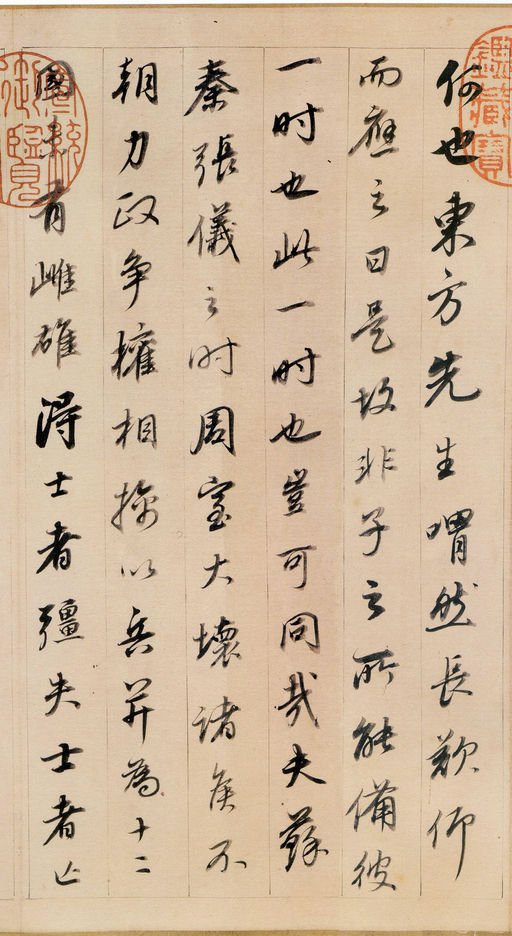 何也東方先生喟然長歎仰
而應之曰是故非子之所能備彼
一時也此一時也豈可同哉夫蘇
秦張儀之時周室大壞諸侯不
朝力政争權相擒以兵并為十二
國未有雌雄得士者彊失士者亡
鑑藏寶
御覽